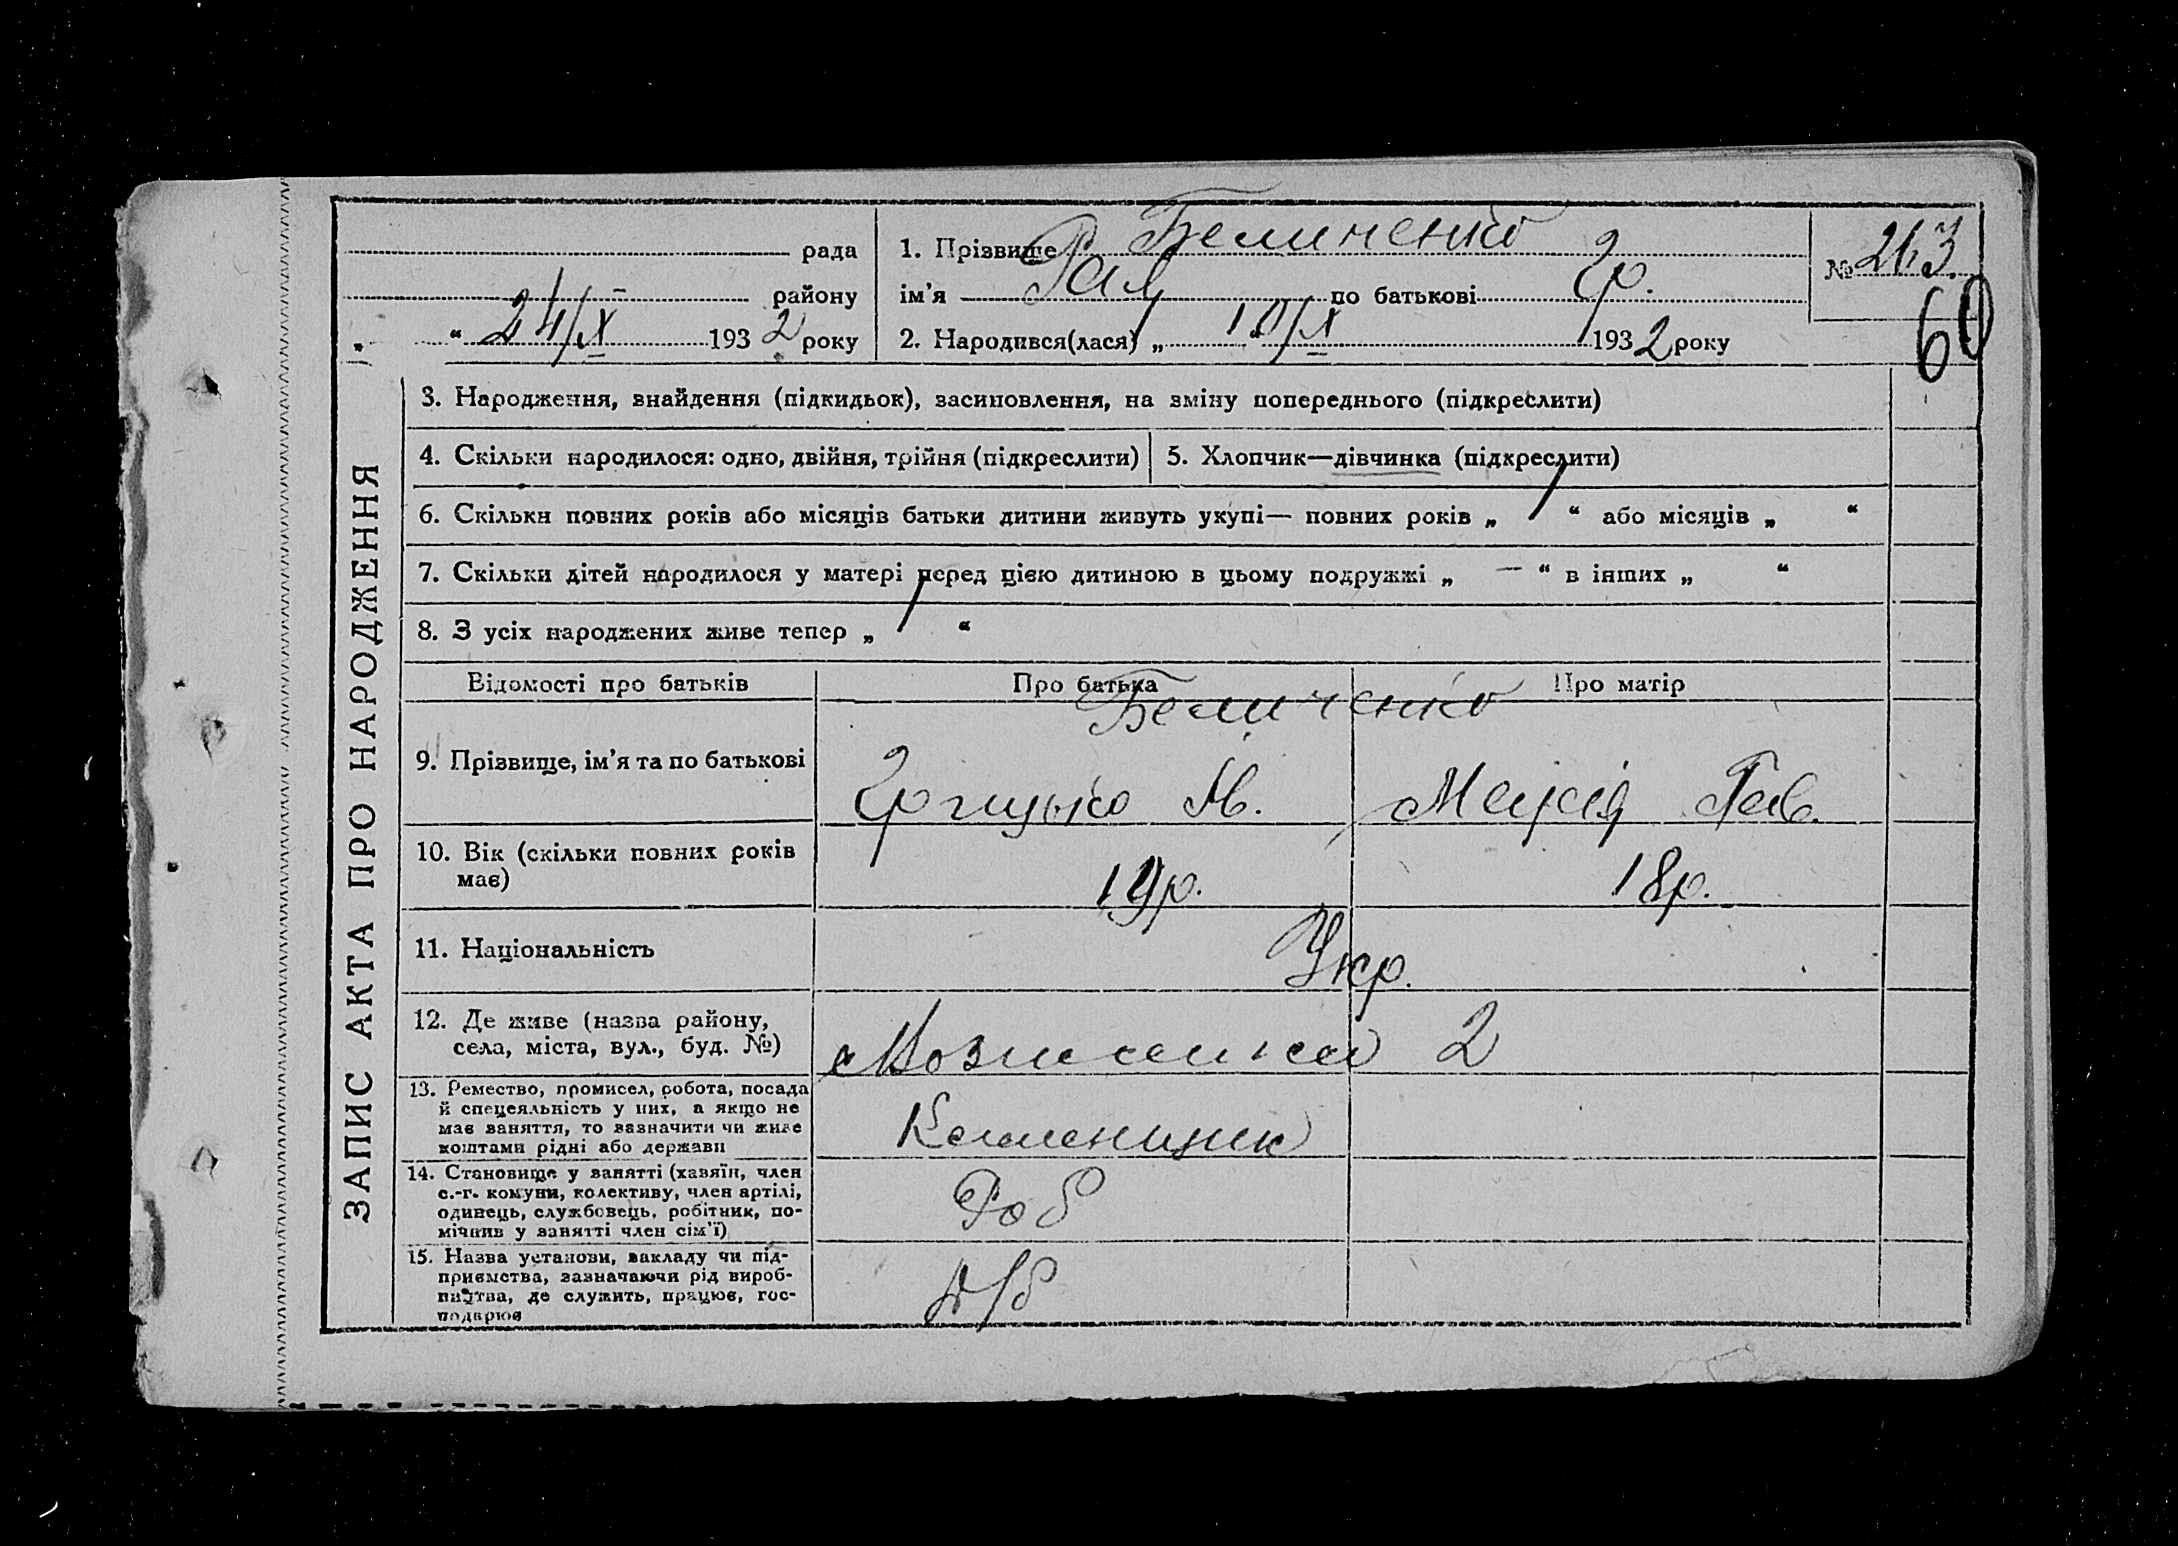 рада
району
" 24/X 1932 року
1. Прізвище Беличенко
ім'я Рая по батькові Гр.
2. Народився(лася) „ 10/X 1932 року
№ 263
60
ЗАПИС АКТА ПРО НАРОДЖЕННЯ
3. Народження, знайдення (підкидьок), засиновлення, на зміну попереднього (підкреслити)
4. Скільки народилося: одно, двійня, трійня (підкреслити)
5. Хлопчик—дівчинка (підкреслити)
6. Скільки повних років або місяців батьки дитини живуть укупі— повних років „ 1 “ або місяців „ “
7. Скільки дітей народилося у матері перед цією дитиною в цьому подружжі „ — “ в інших „ “
8. З усіх народжених живе тепер „ 1 “
Відомості про батьків
Про батька
Про матір
Беличенко
9. Прізвище, ім'я та по батькові
Грицько Ів.
Марія Гав.
10. Вік (скільки повних років
має)
19р.
18р.
11. Національність
Укр.
12. Де живе (назва району,
села, міста, вул., буд. №)
2
13. Ремество, промисел, робота, посада
й спецеяльність у них, а якщо не
має заняття, то зазначити чи живе
коштами рідні або держави
Каменщик
14. Становище у занятті (хазяїн, член
с.-г. комуни, колективу, член артілі,
одинець, службовець, робітник, по-
мічнив у занятті член сім'ї)
Роб
15. Назва установи, закладу чи під-
приємства, зазначаючи рід вироб-
ництва, де служить, працює, гос-
подарює